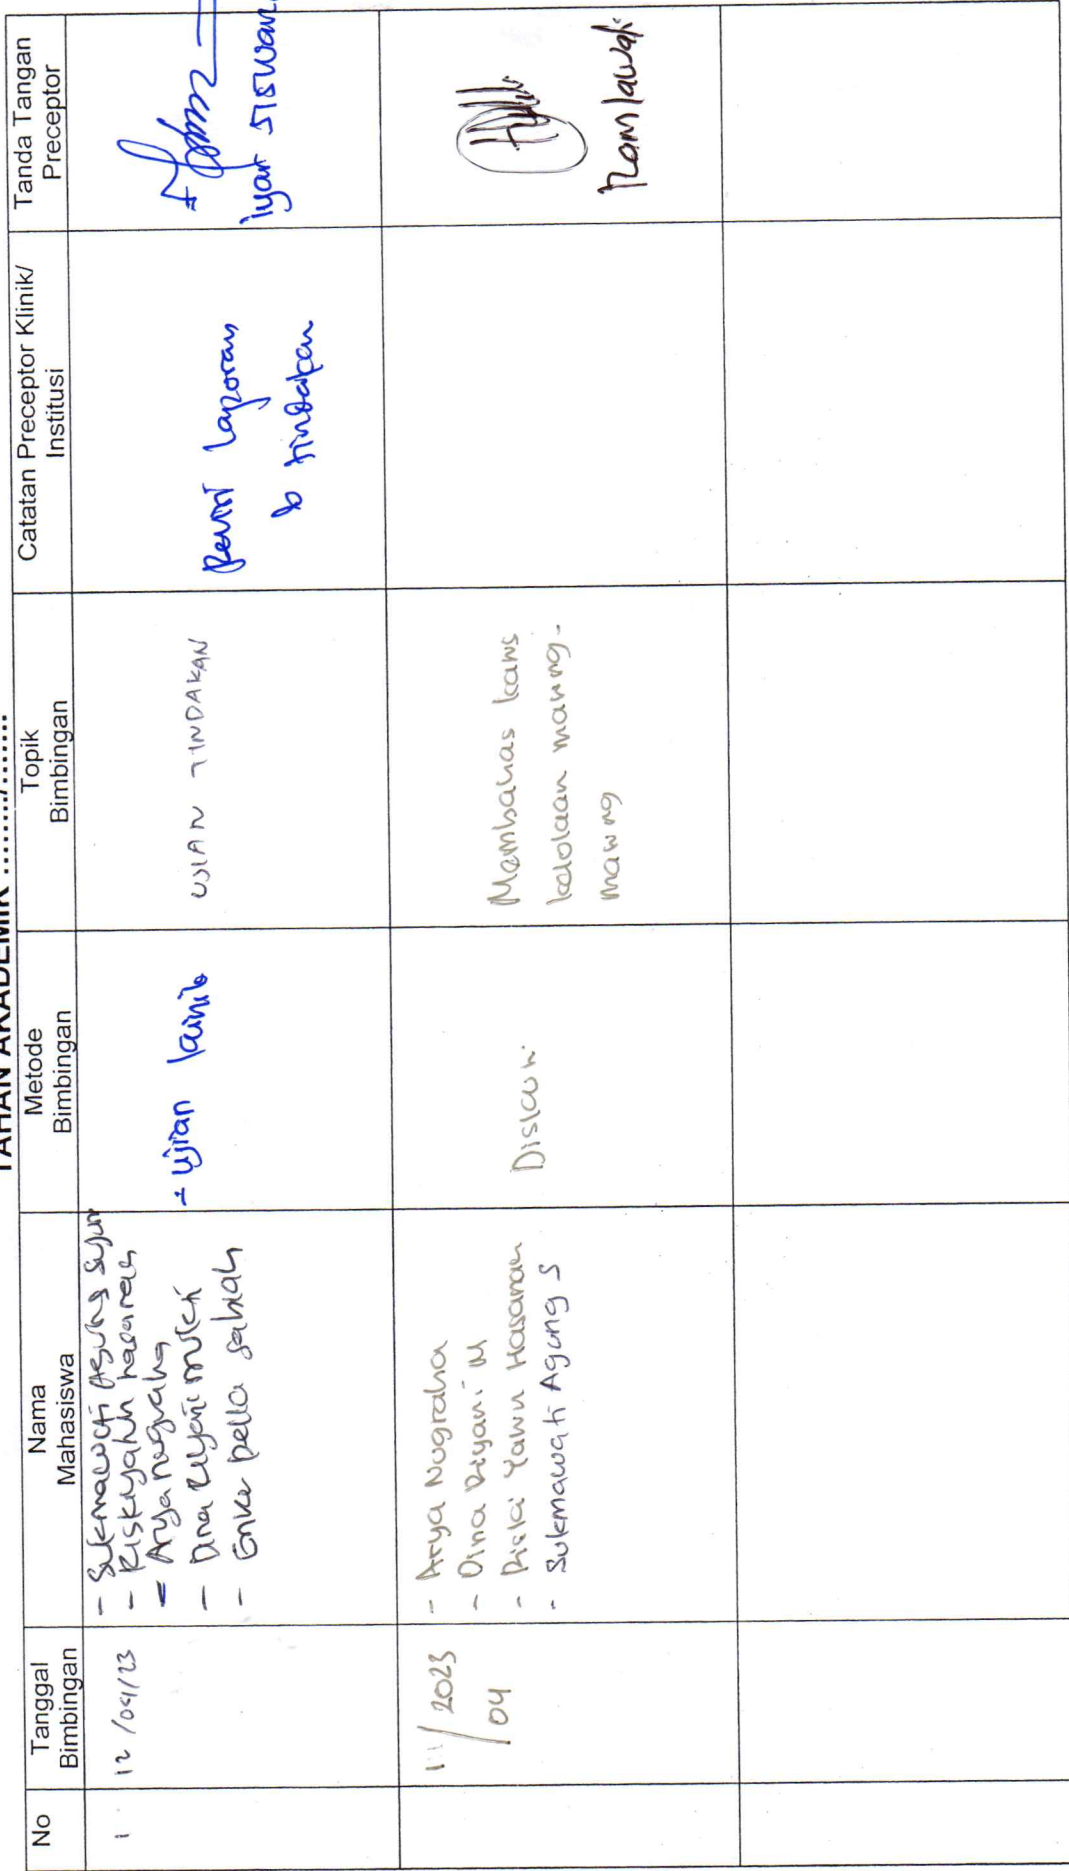 TAHAN AKADEMIK ......../.......
No
Tanggal
Bimbingan
Nama
Mahasiswa
Metode
Bimbingan
Topik
Bimbingan
Catatan Preceptor Klinik/
Institusi
Tanda Tangan
Preceptor
1
12/04/23
- Sukmawati Agung
- Riskiyahn hasanah
- Arya nugraha
- Dina
- Enke bella sabiah
- Ujian
UJIAN TINDAKAN
Revisi Laporan
tindakan
iyar siswan
2023
/04
- Arya Nugraha
- Dina Riyani M
- Riski Yawn Hasanah
- Sukmawati Agung S
Membahas